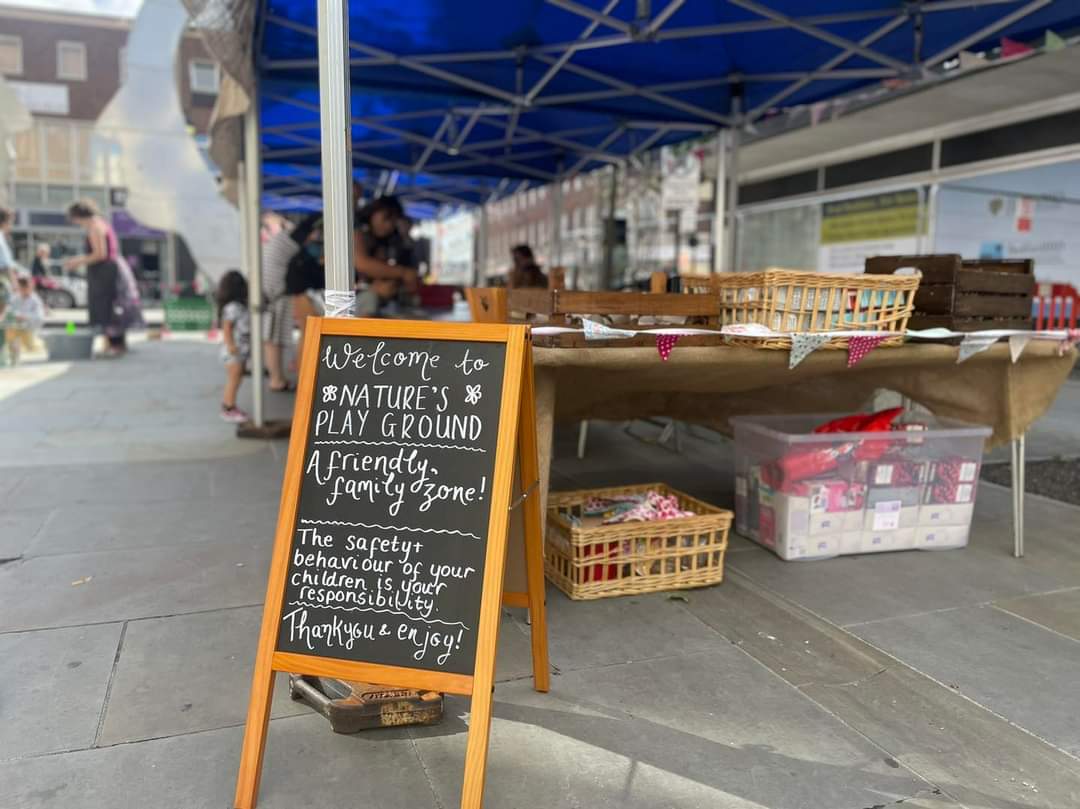 Welcome to
NATURE'S
PLAY GROUND
A friendly,
family zone!
The safety+
behaviour of your
children is your
responsibility.
Thankyou & enjoy!